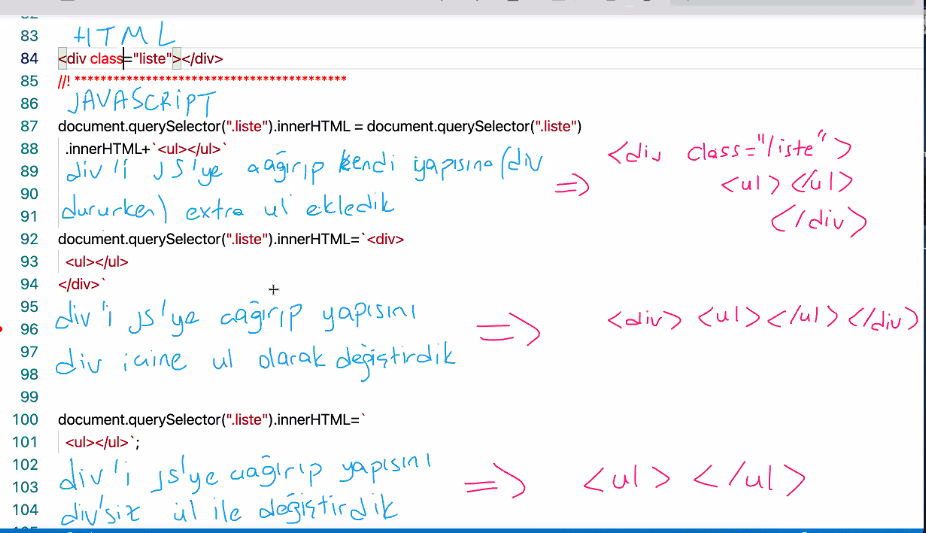 83 HTML
84 <div class="liste"></div>
85 //! ******************************************
86 JAVASCRİPT
87 document.querySelector(".liste").innerHTML = document.querySelector(".liste")
88 .innerHTML+`<ul></ul>`
89 div'i JS'ye çağırıp kendi yapısına (div
90
91 dururken) extra ul ekledik
=> <div class="liste">
<ul></ul>
</div>
92 document.querySelector(".liste").innerHTML=`<div>
93 <ul></ul>
94 </div>`
95 div'i js'ye çağırıp yapısını
96
97 div içine ul olarak değiştirdik
98
=> <div> <ul></ul></div>
99
100 document.querySelector(".liste").innerHTML=`
101 <ul></ul>`;
102 div'i js'ye çağırıp yapısını
103
104 div'siz ul ile değiştirdik
=> <ul> </ul>